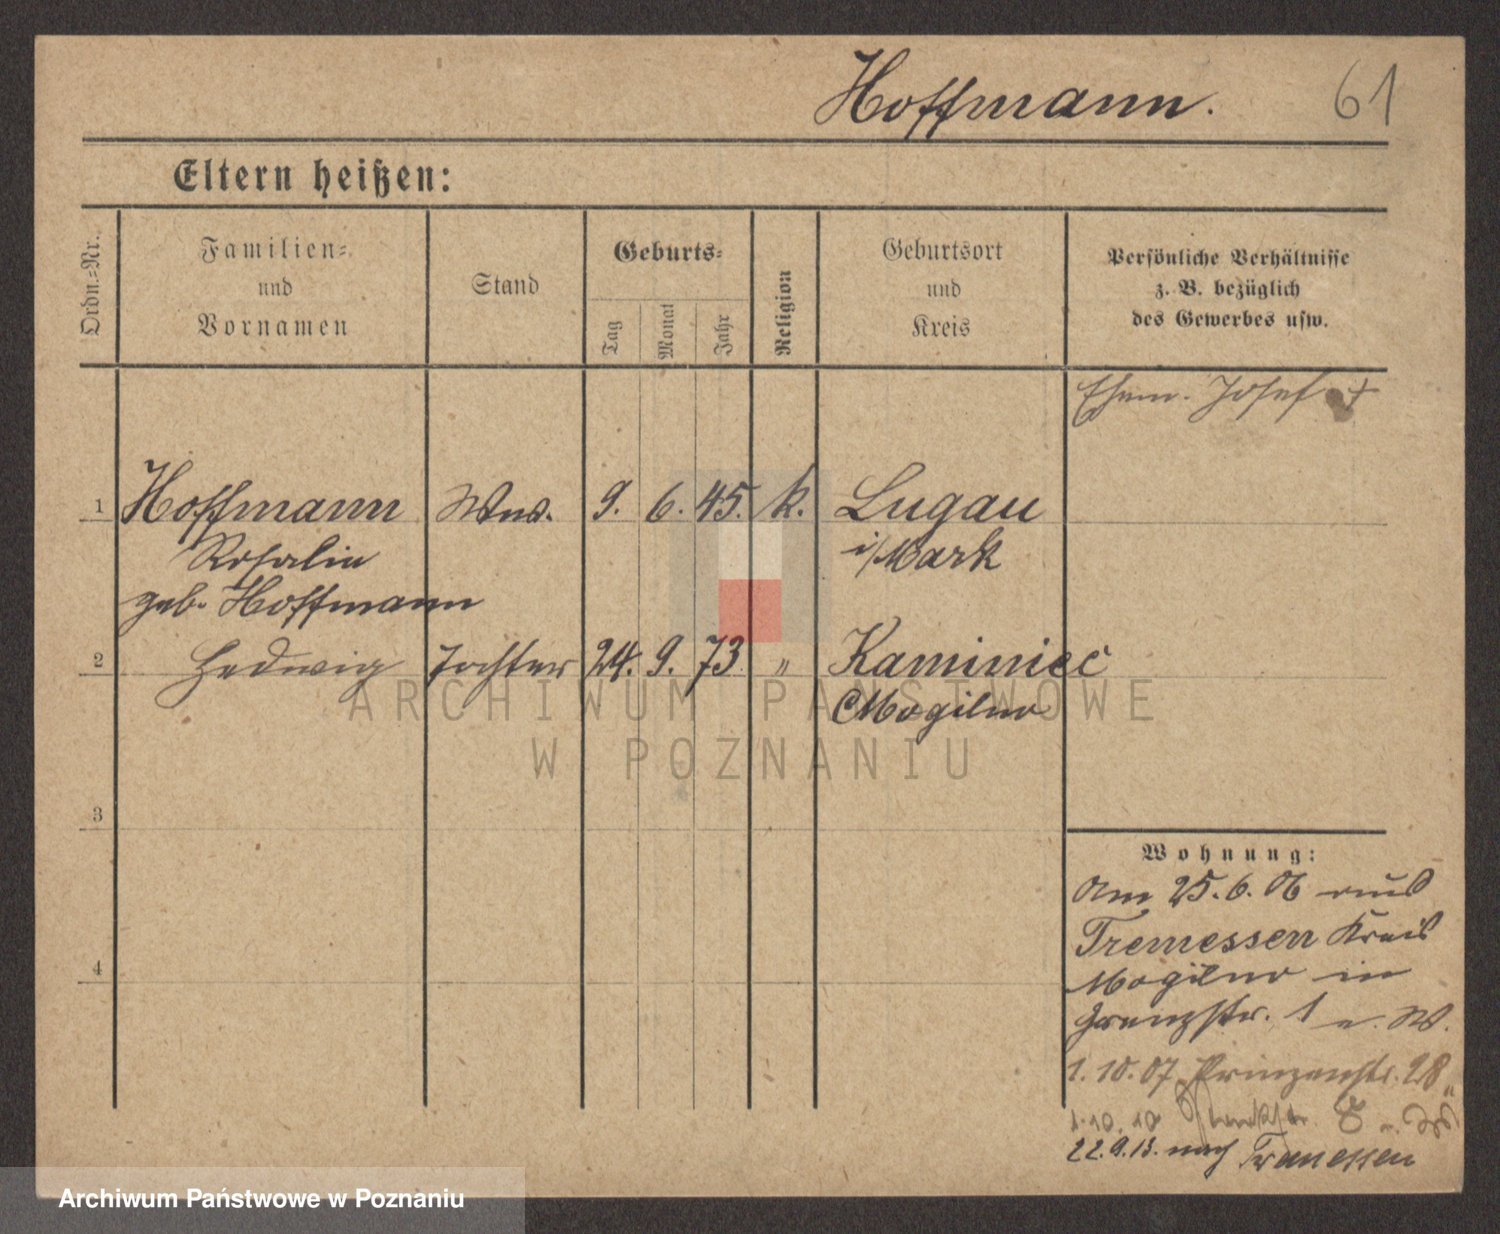 Hoffmann. 61
Eltern heißen:
Ordn.-Nr.
Familien-
und
Vornamen
Stand
Geburts-
Tag
Monat
Jahr
Religion
Geburtsort
und
Kreis
Persönliche Verhältnisse
z. B. bezüglich
des Gewerbes usw.
Ehem. Josef +
1 Hoffmann Wwe. 9. 6. 45. k. Lugau
Rosalie i/Mark
geb. Hoffmann
2 Hedwig Tochter 24. 9. 73. " Kaminiec
Mogilno
ARCHIWUM PAŃSTWOWE
W POZNANIU
3
4
Wohnung:
Am 25.6.06 aus
Tremessen Kreis
Mogilno in
Grenzstr. 1 e. W.
1.10.07 Prinzenstr. 28
1.10.10
22.9.13. nach Tremessen
Archiwum Państwowe w Poznaniu